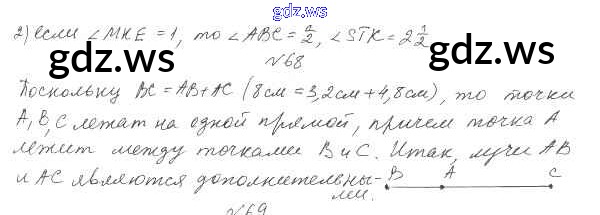 gdz.ws
2) если ∠MKE = 1, то ∠ABC = a/2, ∠STK = 2 1/2
gdz.ws gdz.ws
№68
Поскольку BC = AB + AC (8 см = 3,2 см + 4,8 см), то точки
A, B, C лежат на одной прямой, причем точка A
лежит между точками B и C. Итак, лучи AB
и AC являются дополнительны-
ми.
B A C
gdz.ws gdz.ws
№69